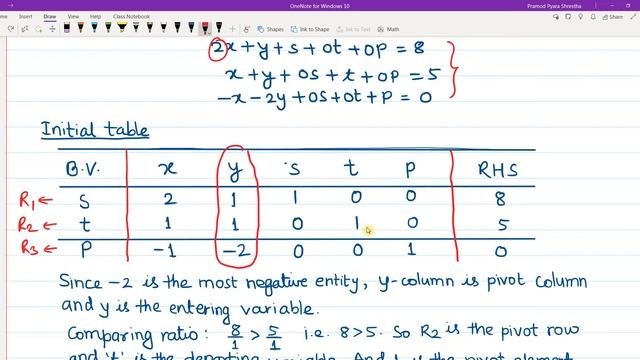 OneNote for Windows 10
Pramod Pyara Shrestha
File Home Insert Draw View Help
Ink to Shape
Ink to Text
2x + y + s + 0t + 0P = 8
x + y + 0s + t + 0P = 5
-x - 2y + 0s + 0t + P = 0
Initial table
B.V. x y s t P RHS
R1 ← s 2 1 1 0 0 8
R2 ← t 1 1 0 1 0 5
R3 ← P -1 -2 0 0 1 0
Since -2 is the most negative entity, y-column is pivot column
and y is the entering variable.
Comparing ratio: 8/1 > 5/1 i.e. 8 > 5. So R2 is the pivot row
and 't' is the departing variable. And 1 is the pivot element